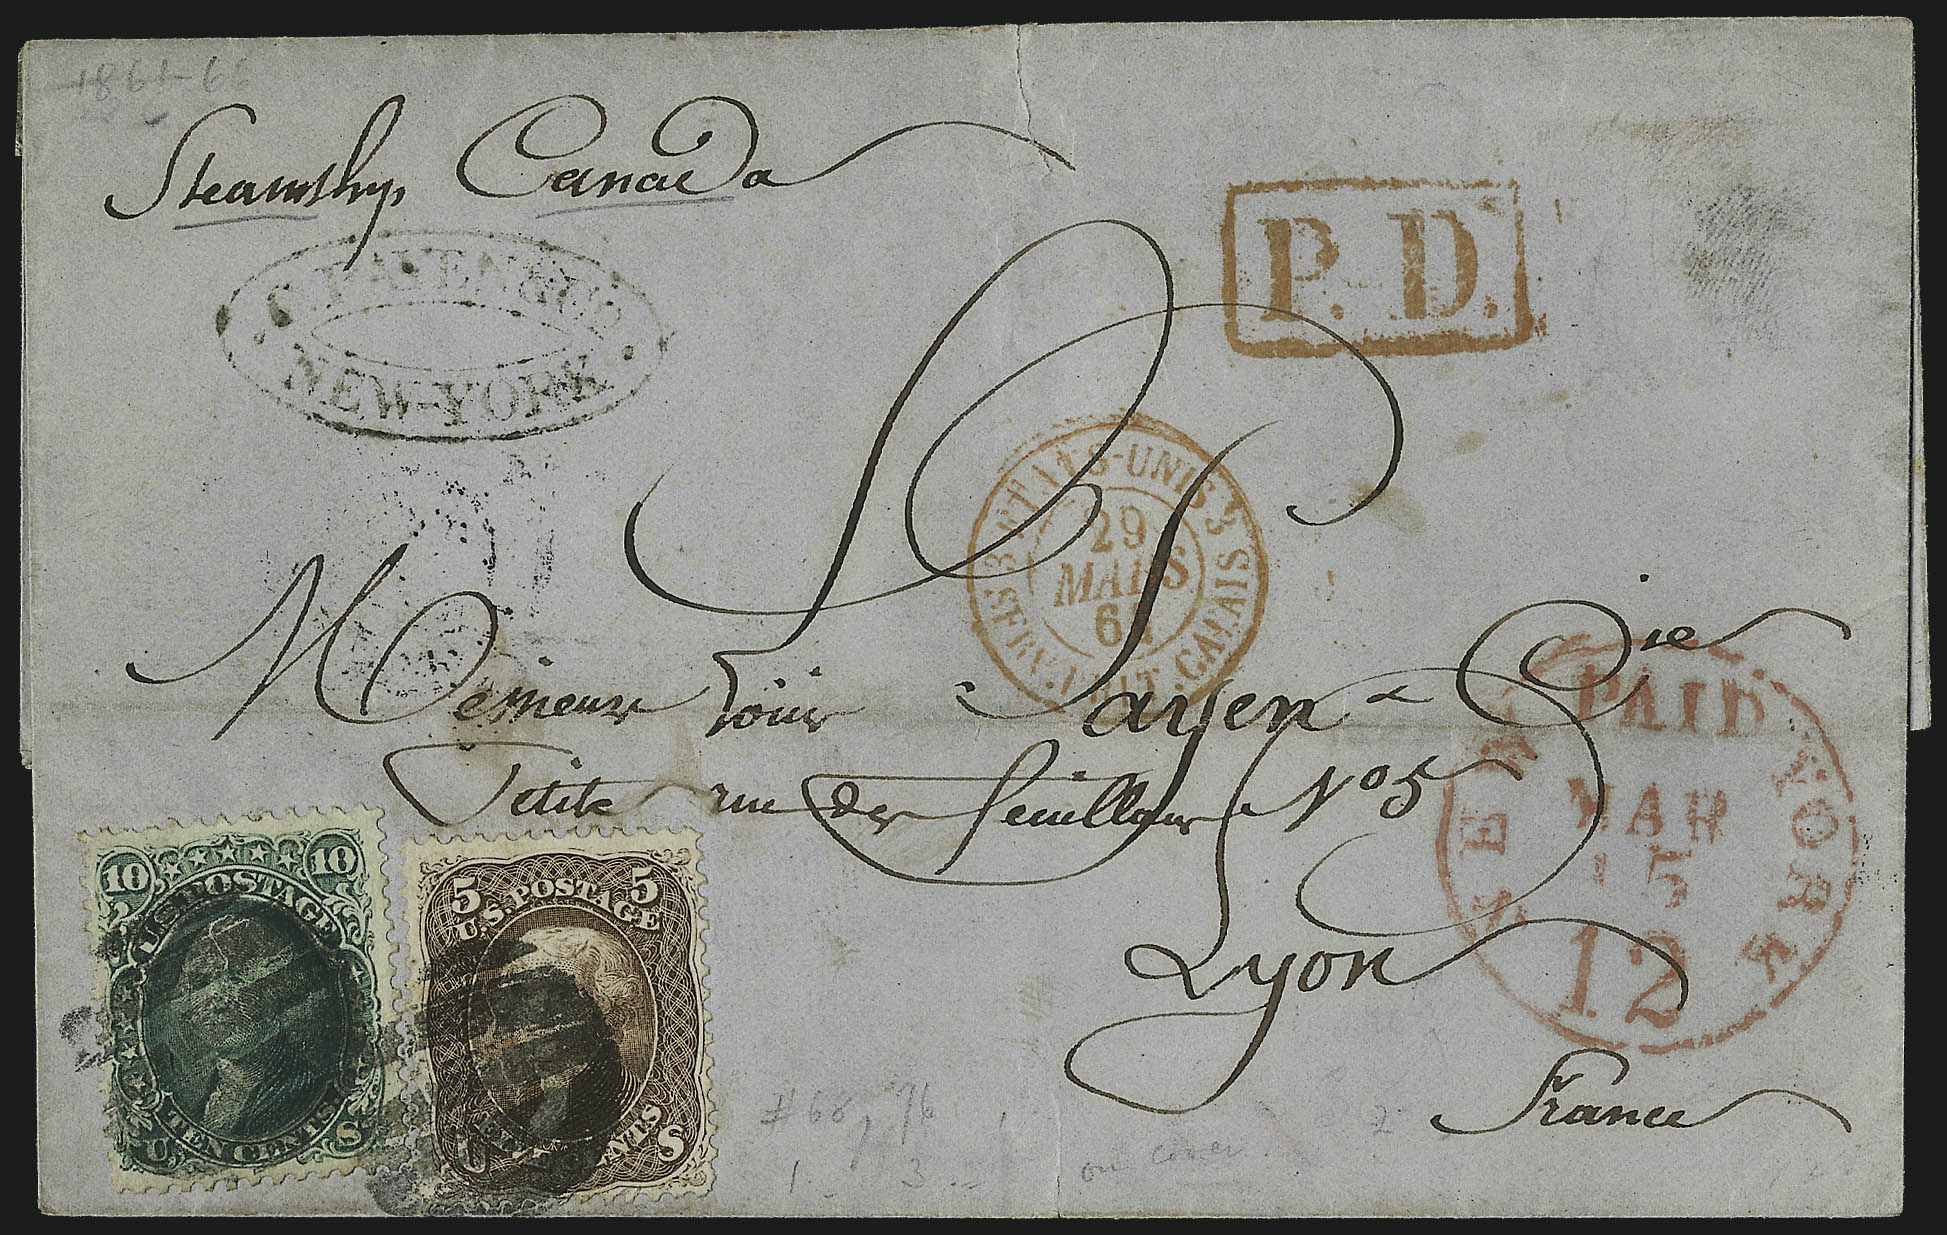 1861-66
Steamship Canada
P. D.
C. PAYEN & CO
NEW-YORK
3 ETATS-UNIS 3
29
MARS
SERV. BRIT. CALAIS
Messieurs Louis Payen & Cie
Petite rue des Feuillans No 5
Lyon
France
NEW YORK
PAID
MAR
15
12
10 10
U.S. POSTAGE
TEN CENTS
U S
5 5
U.S. POSTAGE
CENTS
U S
#68, 76
1 3
on cover